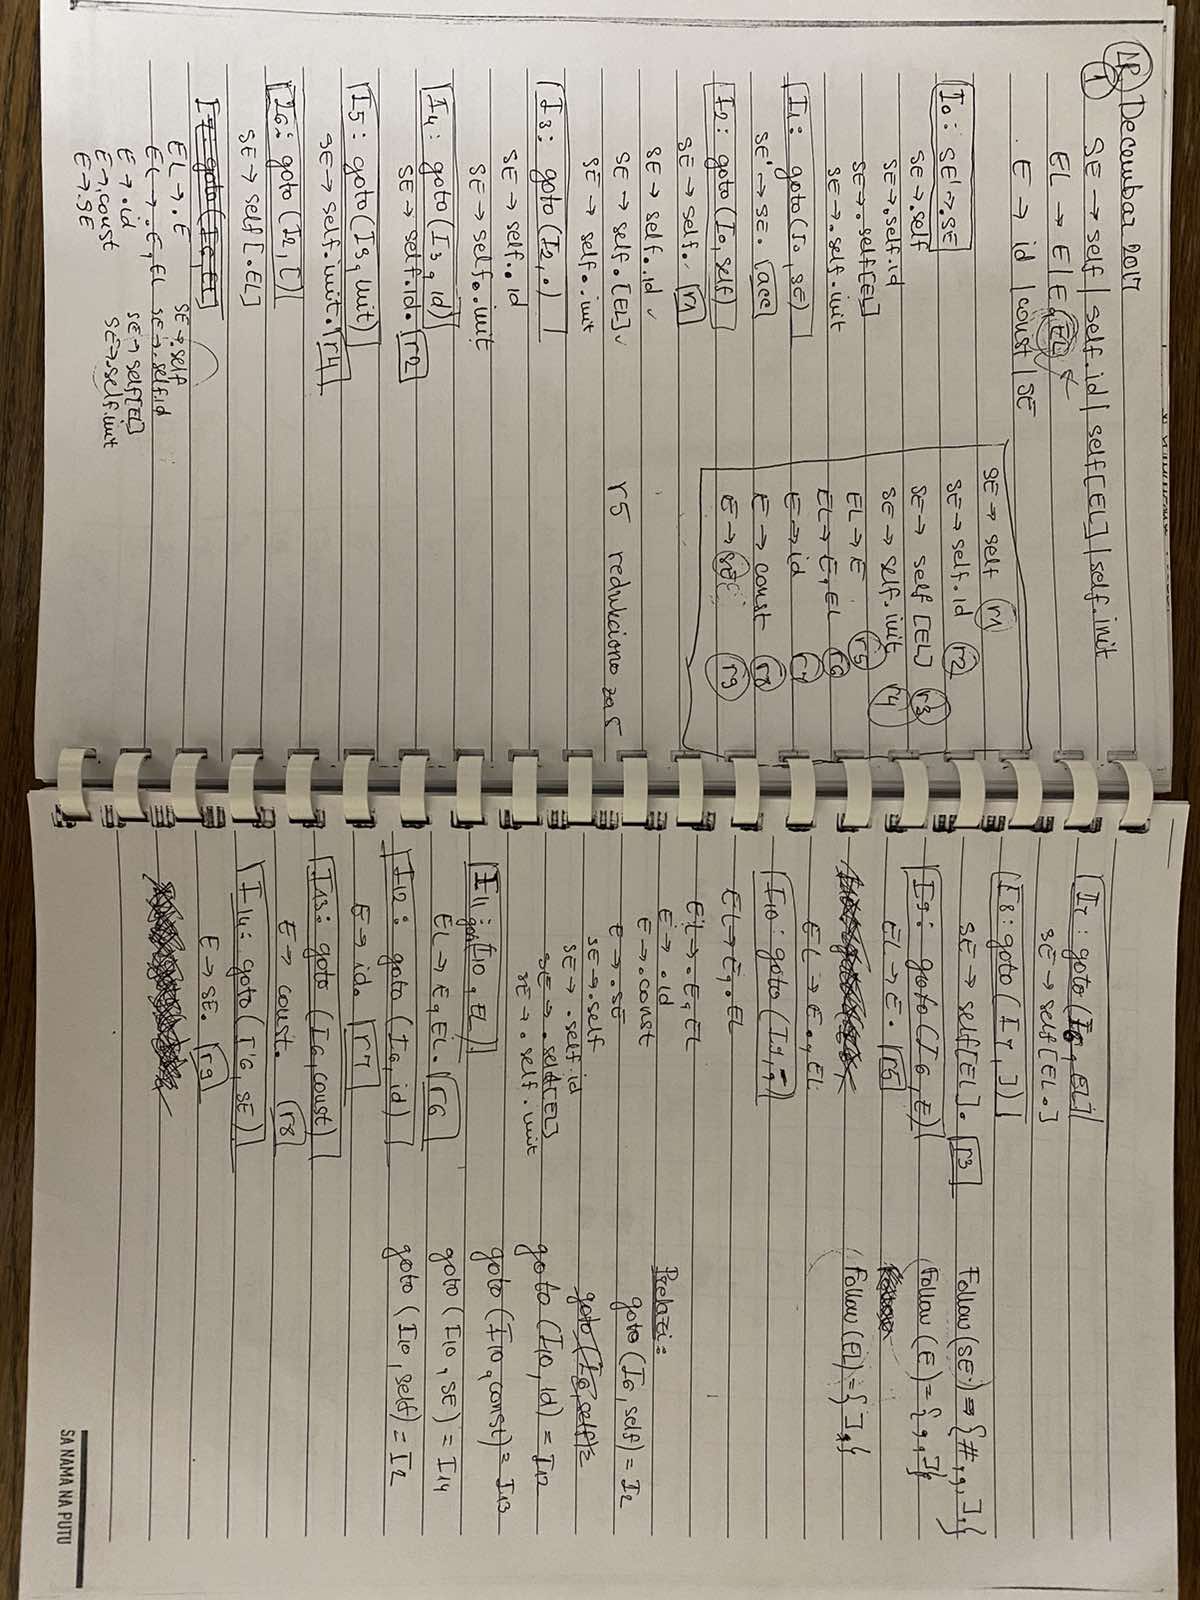 LR Decembar 2017
1 SE → self | self.id | self[EL] | self.init
EL → E | E,EL
E → id | const | SE
I0: SE' → .SE
SE → .self
SE → .self.id
SE → .self[EL]
SE → .self.init
I1: goto(I0, SE)
SE' → SE. acc
I2: goto(I0, self)
SE → self. r1
SE → self..id
SE → self.[EL]
SE → self..init
I3: goto(I2, .)
SE → self..id
SE → self..init
I4: goto(I3, id)
SE → self.id. r2
I5: goto(I3, init)
SE → self.init. r4
I6: goto(I2, [)
SE → self[.EL]
I7: goto(I6, EL)
EL → .E SE → .self
EL → .E,EL SE → .self.id
E → .id SE → self[EL]
E → .const SE → .self.init
E → .SE
SE → self r1
SE → self.id r2
SE → self[EL] r3
SE → self.init r4
EL → E r5
EL → E,EL r6
E → id r7
E → const r8
E → SE r9
r5 redukciono za 5
I7: goto(I6, EL)
SE → self[EL.]
I8: goto(I7, ])
SE → self[EL]. r3
I9: goto(I6, E)
EL → E. r5
EL → E.,EL
I10: goto(I9, ,)
EL → E,.EL
EL → .E,EL
E → .id
E → .const
E → .SE
SE → .self
SE → .self.id
SE → .self[EL]
SE → .self.init
I11: goto(I10, EL)
EL → E,EL. r6
I12: goto(I6, id)
E → id. r7
I13: goto(I6, const)
E → const. r8
I14: goto(I6, SE)
E → SE. r9
Follow(SE) = {#, ,, ]}
Follow(E) = {,, ]}
Follow(EL) = {]}
Prelazi:
goto(I6, self) = I2
goto(I6, self) =
goto(I10, id) = I12
goto(I10, const) = I13
goto(I10, SE) = I14
goto(I10, self) = I2
SA NAMA NA PUTU